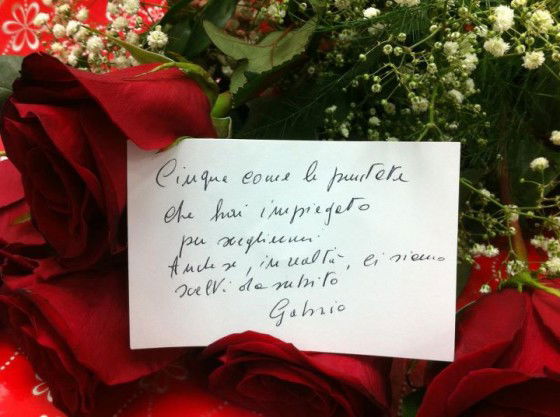 Cinque come le puntate
che hai impiegato
per scegliermi.
Anche se, in realtà, ci siamo
scelti da subito
Gabrio